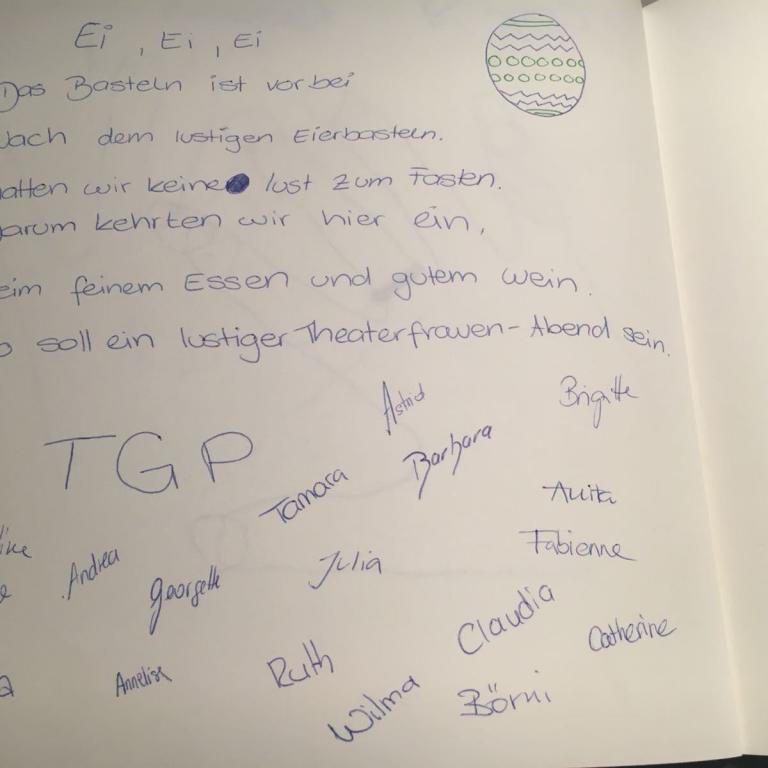 Ei, Ei, Ei
Das Basteln ist vorbei
Nach dem lustigen Eierbasteln.
atten wir keine lust zum Fasten.
arum kehrten wir hier ein,
eim feinem Essen und gutem wein.
o soll ein lustiger Theaterfrauen-Abend sein.
Astrid
Brigitte
TGP
Barbara
Tamara
Anita
Fabienne
Andrea
Julia
Georgette
Claudia
Catherine
Ruth
Annelise
Wilma
Börni